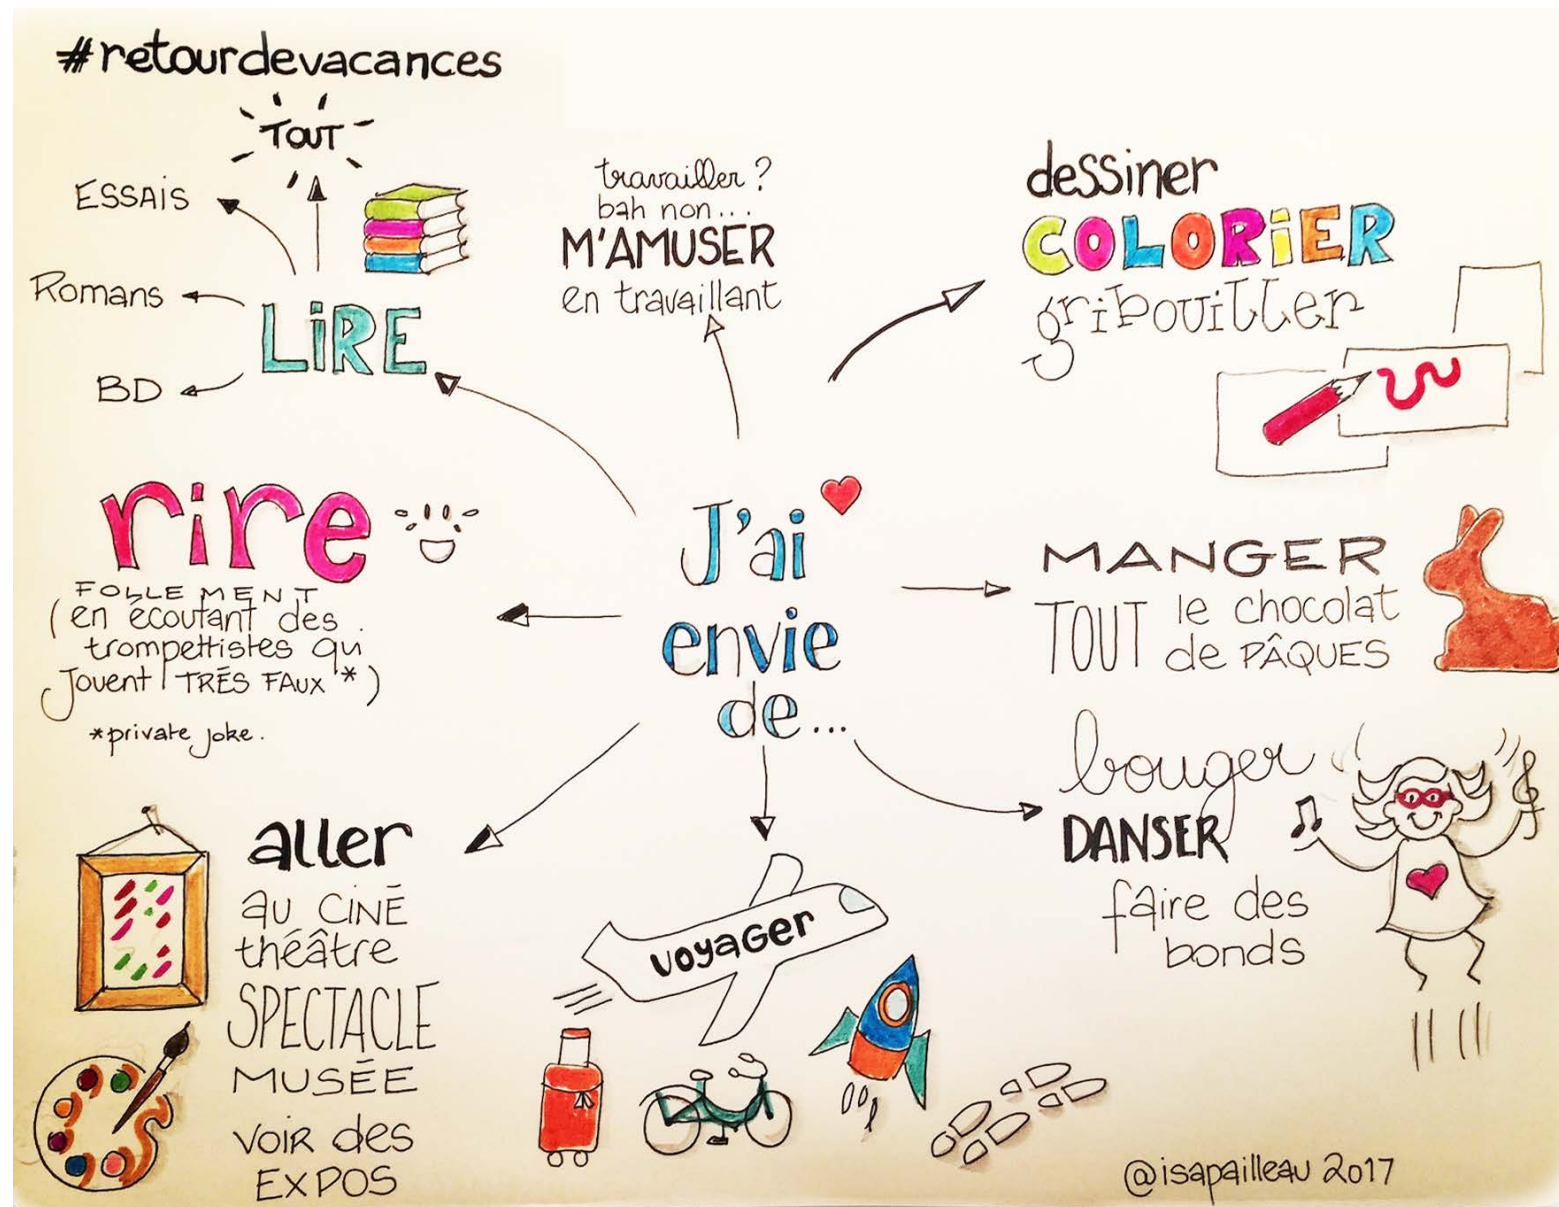 #retourdevacances
TOUT
ESSAIS
Romans
BD
LiRE
travailler ?
bah non...
M'AMUSER
en travaillant
dessiner
COLORiER
gribouiller
rire
FOLLEMENT
(en écoutant des
trompettistes qui
Jouent TRÈS FAUX *)
*private joke.
J'ai
envie
de...
MANGER
TOUT le chocolat
de PÂQUES
bouger
DANSER
faire des
bonds
aller
au CINÉ
théâtre
SPECTACLE
MUSÉE
VOIR des
EXPOS
voyaGer
@isapailleau 2017